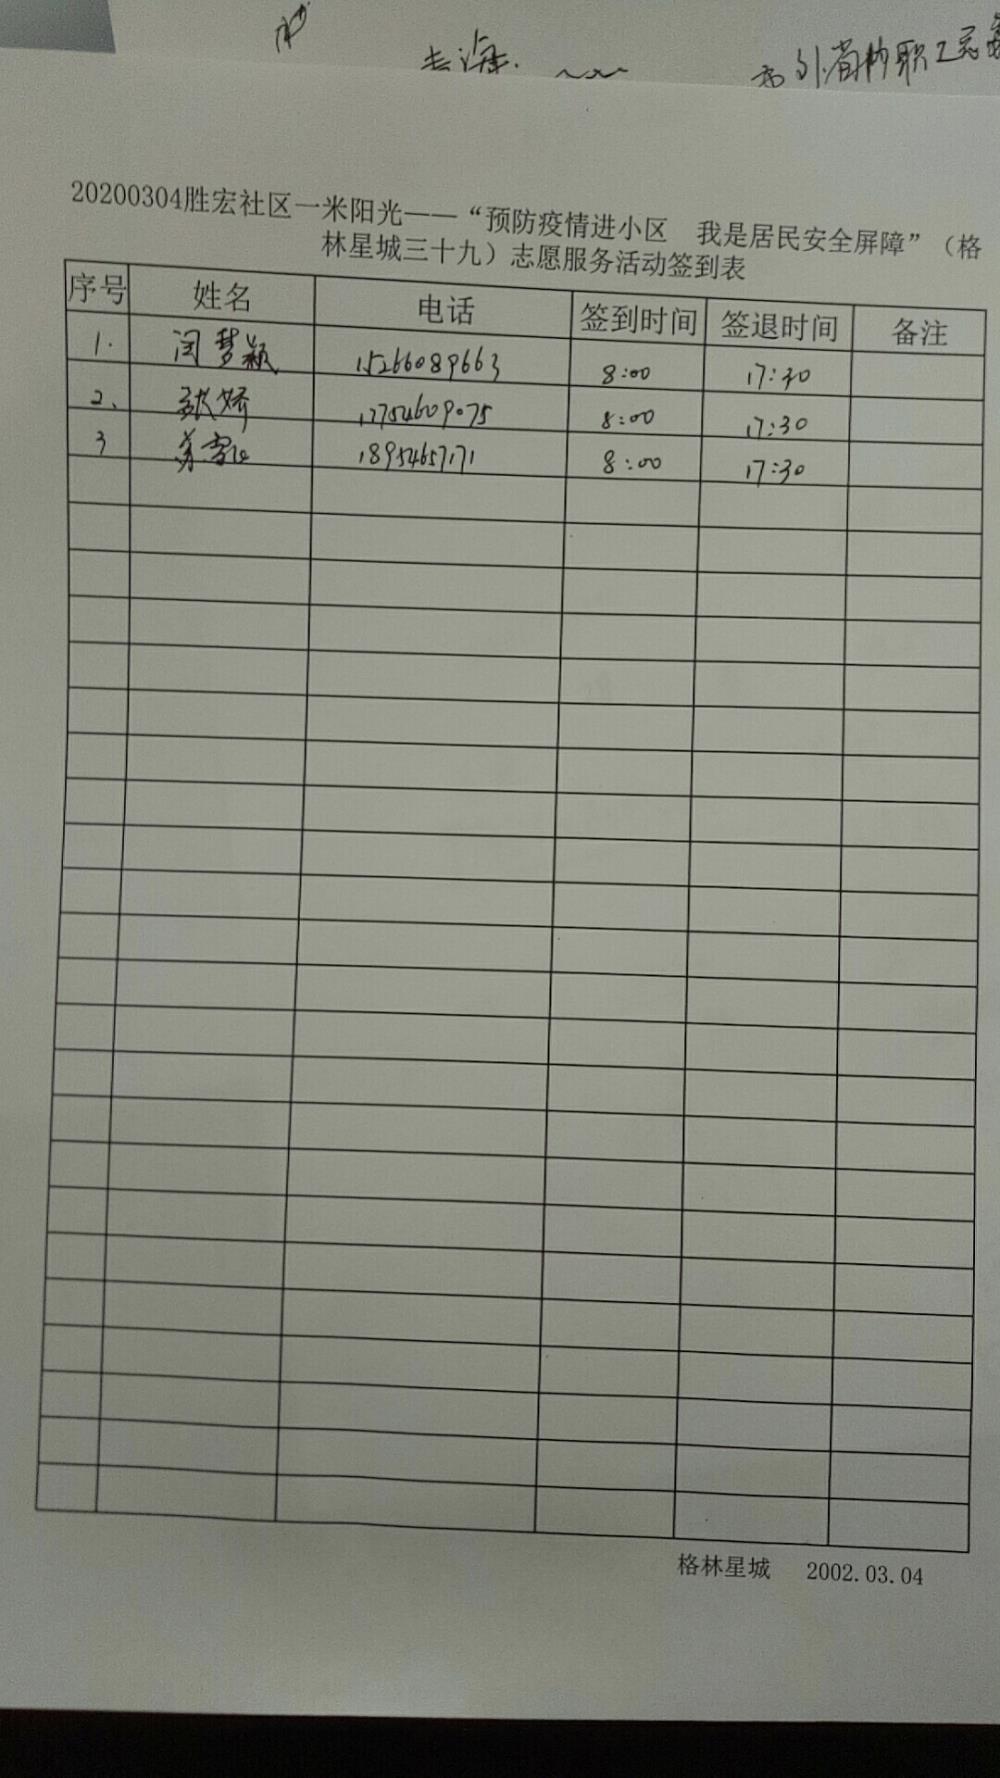 去海.
外省的职工
20200304胜宏社区一米阳光——“预防疫情进小区 我是居民安全屏障”（格
林星城三十九）志愿服务活动签到表
序号 姓名 电话 签到时间 签退时间 备注
1. 闫梦颖 15266089663 8:00 17:30
2、 娇 17754609075 8:00 17:30
3 苏雪 18954657171 8:00 17:30
格林星城 2002.03.04